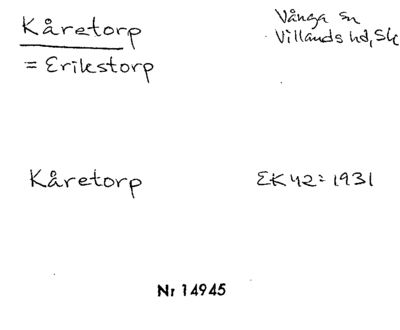 Kåretorp
= Erikstorp
Vånga sn
Villands hd, Sk
Kåretorp
EK 42 = 1931
Nr 14945